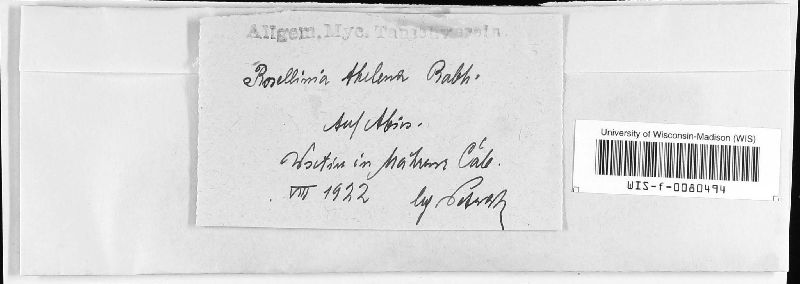 Allgem. Myc. Tauschverein.
Rosellinia thelena Rabh.
Auf Abies.
Wsetin in Mähren Čsl.
VIII 1922 lg Petrak
University of Wisconsin-Madison (WIS)
WIS-f-0080494